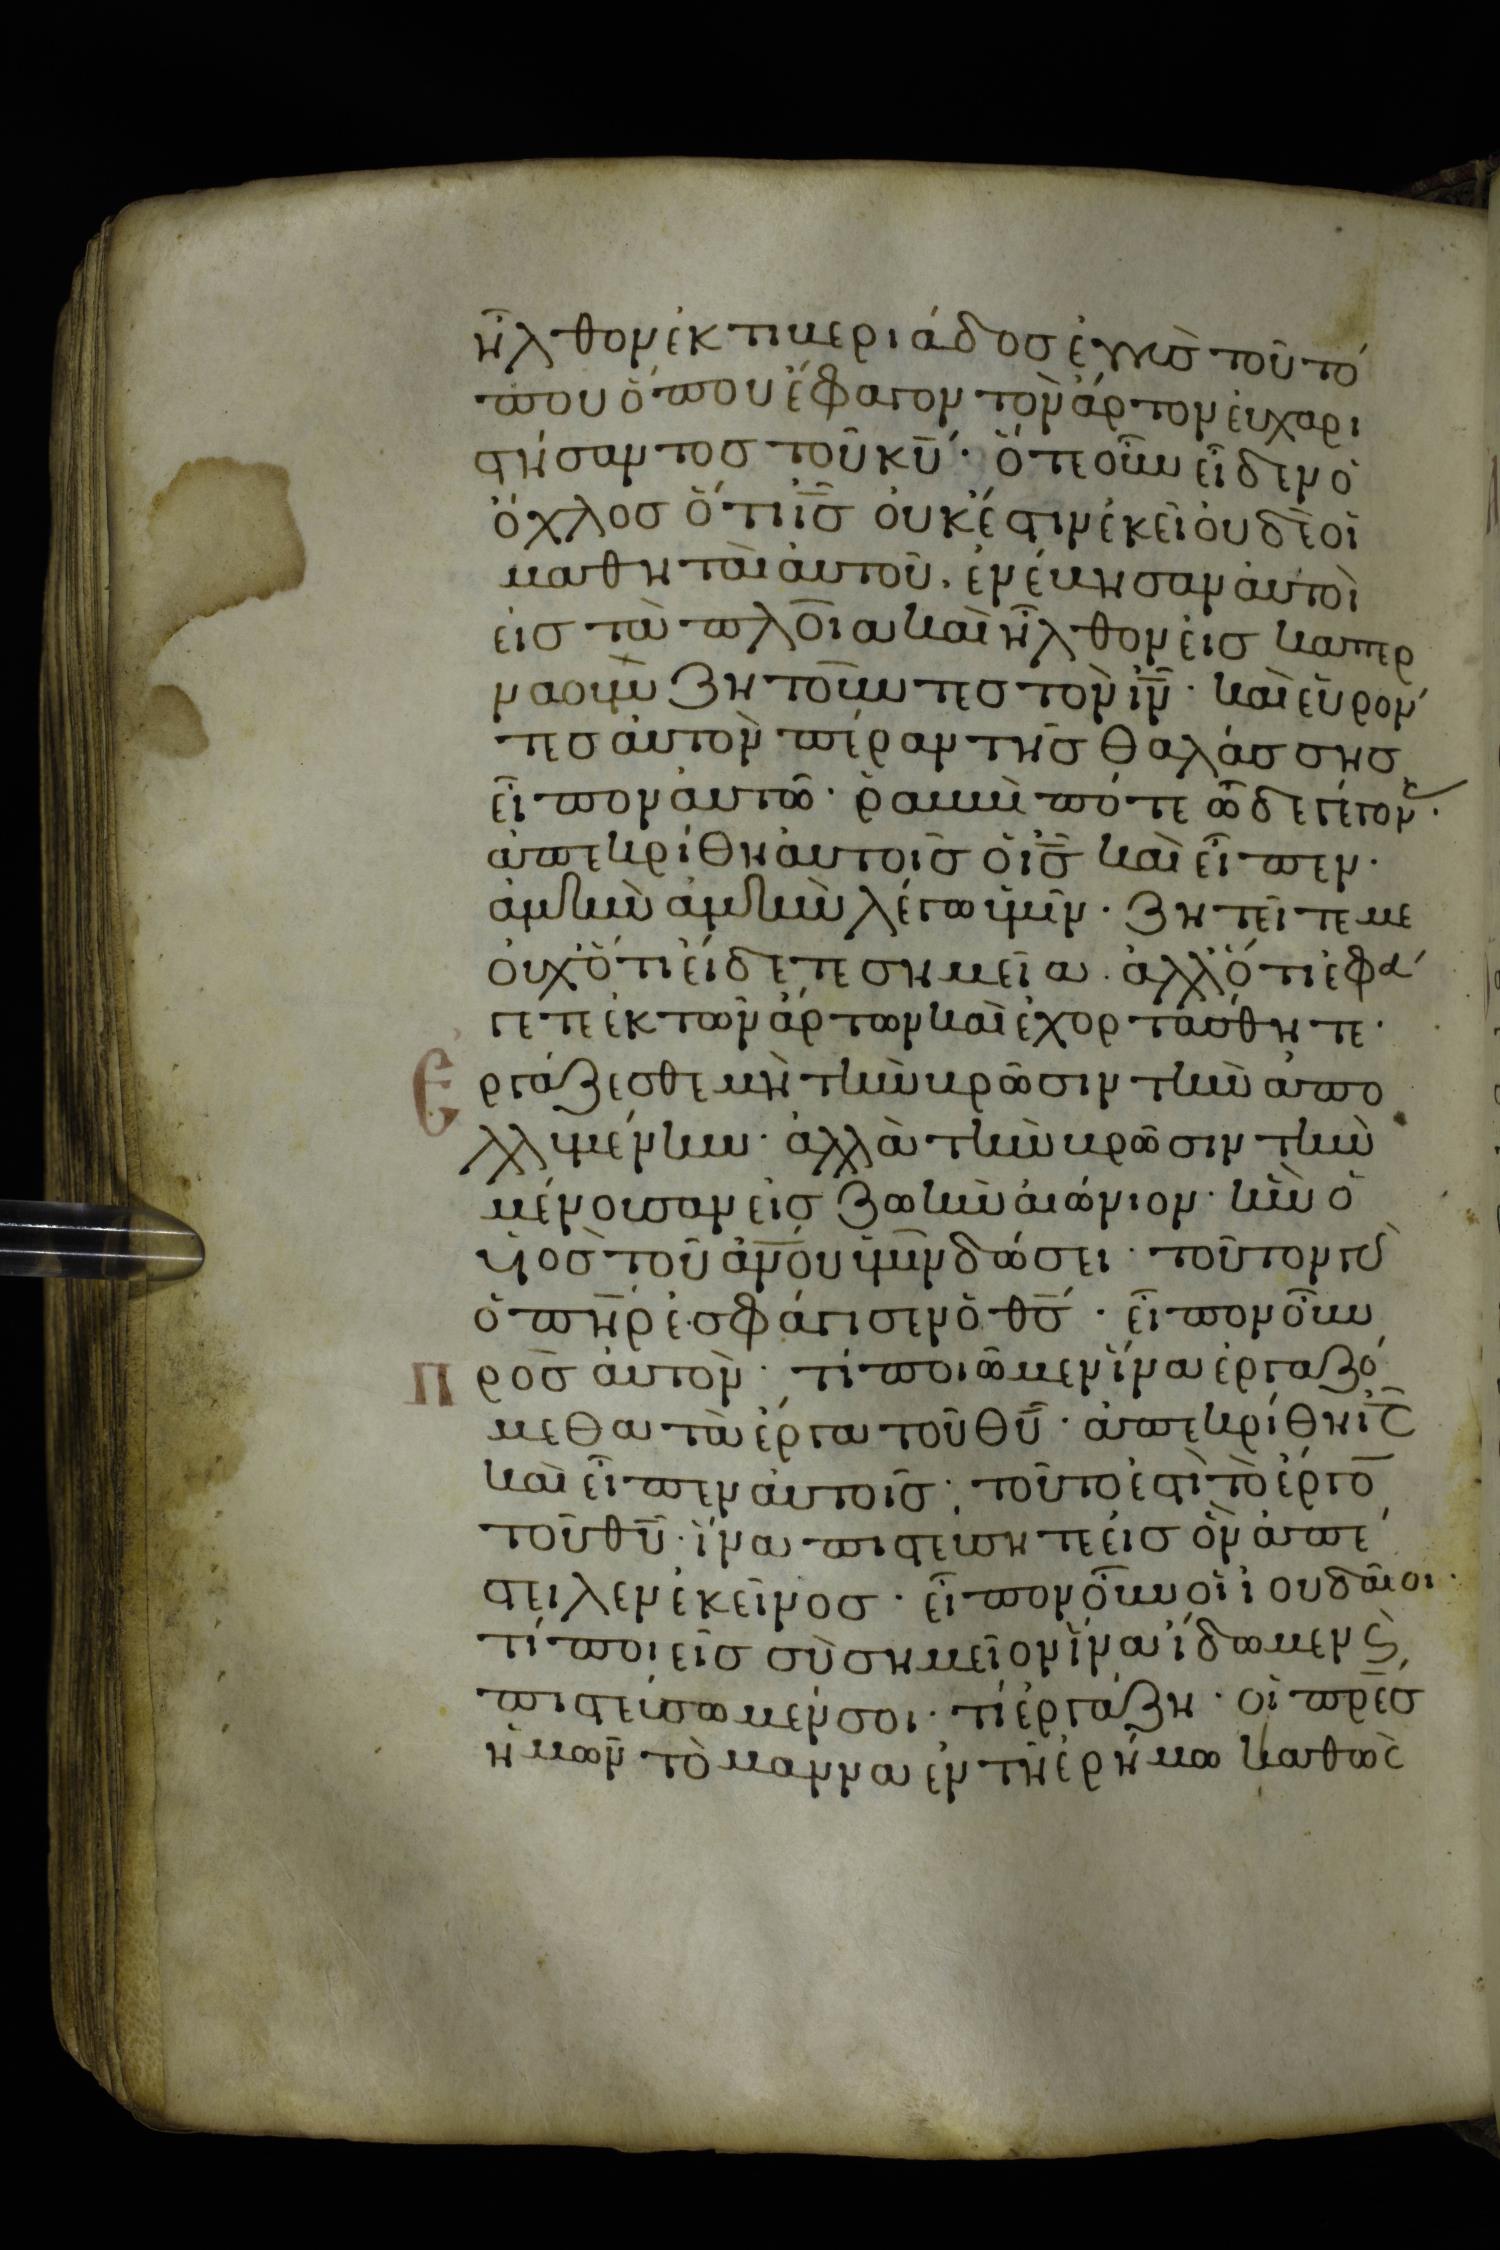 ἦλθον ἐκ τιμεριάδος ἐγγὺς τοῦ τό
που ὅπου ἔφαγον τὸν ἄρτον ἐυχαρι
στήσαντος τοῦ κ̅υ̅· ὅτε οὖν εἶδεν ὁ
ὄχλος ὅτι ι̅ς̅ ὀυκ ἔστιν ἐκεῖ ὀυδὲ οἱ
μαθηταὶ ἀυτοῦ. ἐνέβησαν ἀυτοὶ
ἐις τὰ πλοῖα καὶ ἦλθον ἐις καπερ
ναοὺμ ζητοῦντες τὸν ι̅ν̅· καὶ εὑρόν
τες ἀυτὸν πέραν τῆς θαλάσσης
εἶπον ἀυτῶ· ῥαββὶ πότε ὧδε γέγονας·
ἀπεκρίθη ἀυτοῖς ὁ ι̅ς̅ καὶ εἶπεν·
ἀμὴν ἀμὴν λέγω ὑμῖν· ζητεῖτε με
ὀυχ ὅτι εἴδετε σημεῖα· ἀλλ ὅτι ἐφά
γετε ἐκ τῶν ἄρτων καὶ ἐχορτάσθητε·
Ἐργάζεσθε μὴ τὴν βρῶσιν τὴν ἀπο
λλυμένην· ἀλλὰ τὴν βρῶσιν τὴν
μένουσαν εἰς ζωὴν ἀιώνιον· ἣν ὁ
υἱὸς τοῦ ἀ̅ν̅ο̅υ ὑμῖν δώσει· τοῦτον γὰρ
ὁ π̅η̅ρ̅ ἐσφάγισεν ὁ θ̅ς̅· εἶπον οὖν
Πρὸς ἀυτὸν· τί ποιῶμεν ἵνα ἐργαζό
μεθα τὰ ἔργα τοῦ θ̅υ̅· ἀπεκρίθη ι̅ς̅
καὶ εἶπεν ἀυτοῖς· τοῦτο ἐστὶ τὸ ἔργο̅
τοῦ θ̅υ̅· ἵνα πιστεύητε ἐις ὃν ἀπέ
στειλεν ἐκεῖνος· εἶπον οὖν οἱ ἰουδαῖοι·
τί ποιεῖς σὺ σημεῖον ἵνα ἴδωμεν ϗ
πιστεύσωμέν σοι· τί ἐργάζη· οἱ π̅ρ̅ε̅ς̅
ἡμῶν τὸ μάννα ἐν τῆ ἐρήμω καθὼς